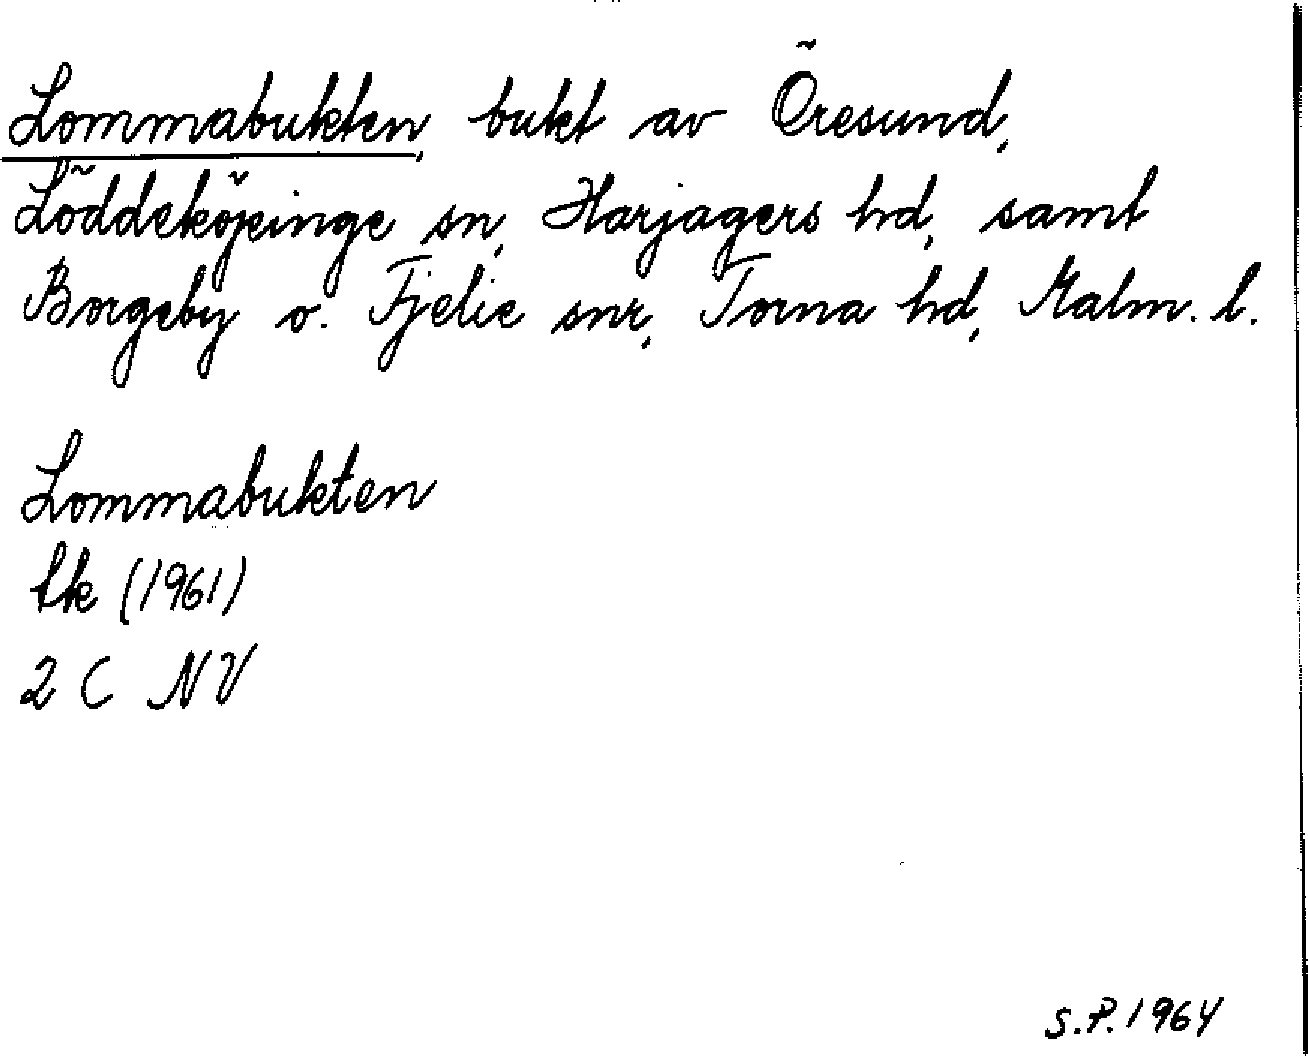 Lommabukten, bukt av Öresund,
Löddeköpinge sn, Harjagers hd, samt
Borgeby o. Fjelie snr, Torna hd, Malm. l.
Lommabukten
Ek (1961)
2 C NV
S.P. 1964